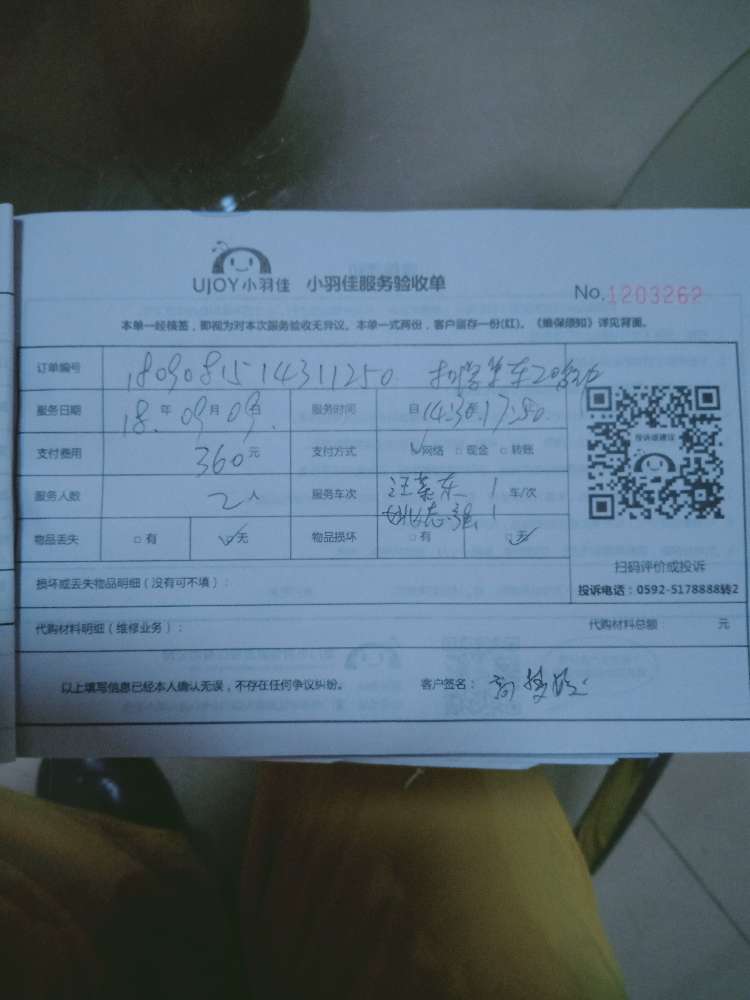 UJOY小羽佳 小羽佳服务验收单
No.1203262
本单一经核签，即视为对本次服务验收无异议。本单一式两份，客户留存一份(红)。《维保须知》详见背面。
订单编号 18090815 14311250
服务日期 18年09月09日 服务时间 自14:30至17:30
支付费用 360元 支付方式 ☑网络 □现金 □转账
服务人数 2人 服务车次 1 车/次
物品丢失 □有 ☑无 物品损坏 □有 ☑无
投诉或建议
扫码评价或投诉
投诉电话：0592-5178888转2
损坏或丢失物品明细（没有可不填）：
代购材料明细（维修业务）： 代购材料总额 元
以上填写信息已经本人确认无误，不存在任何争议纠纷。 客户签名：